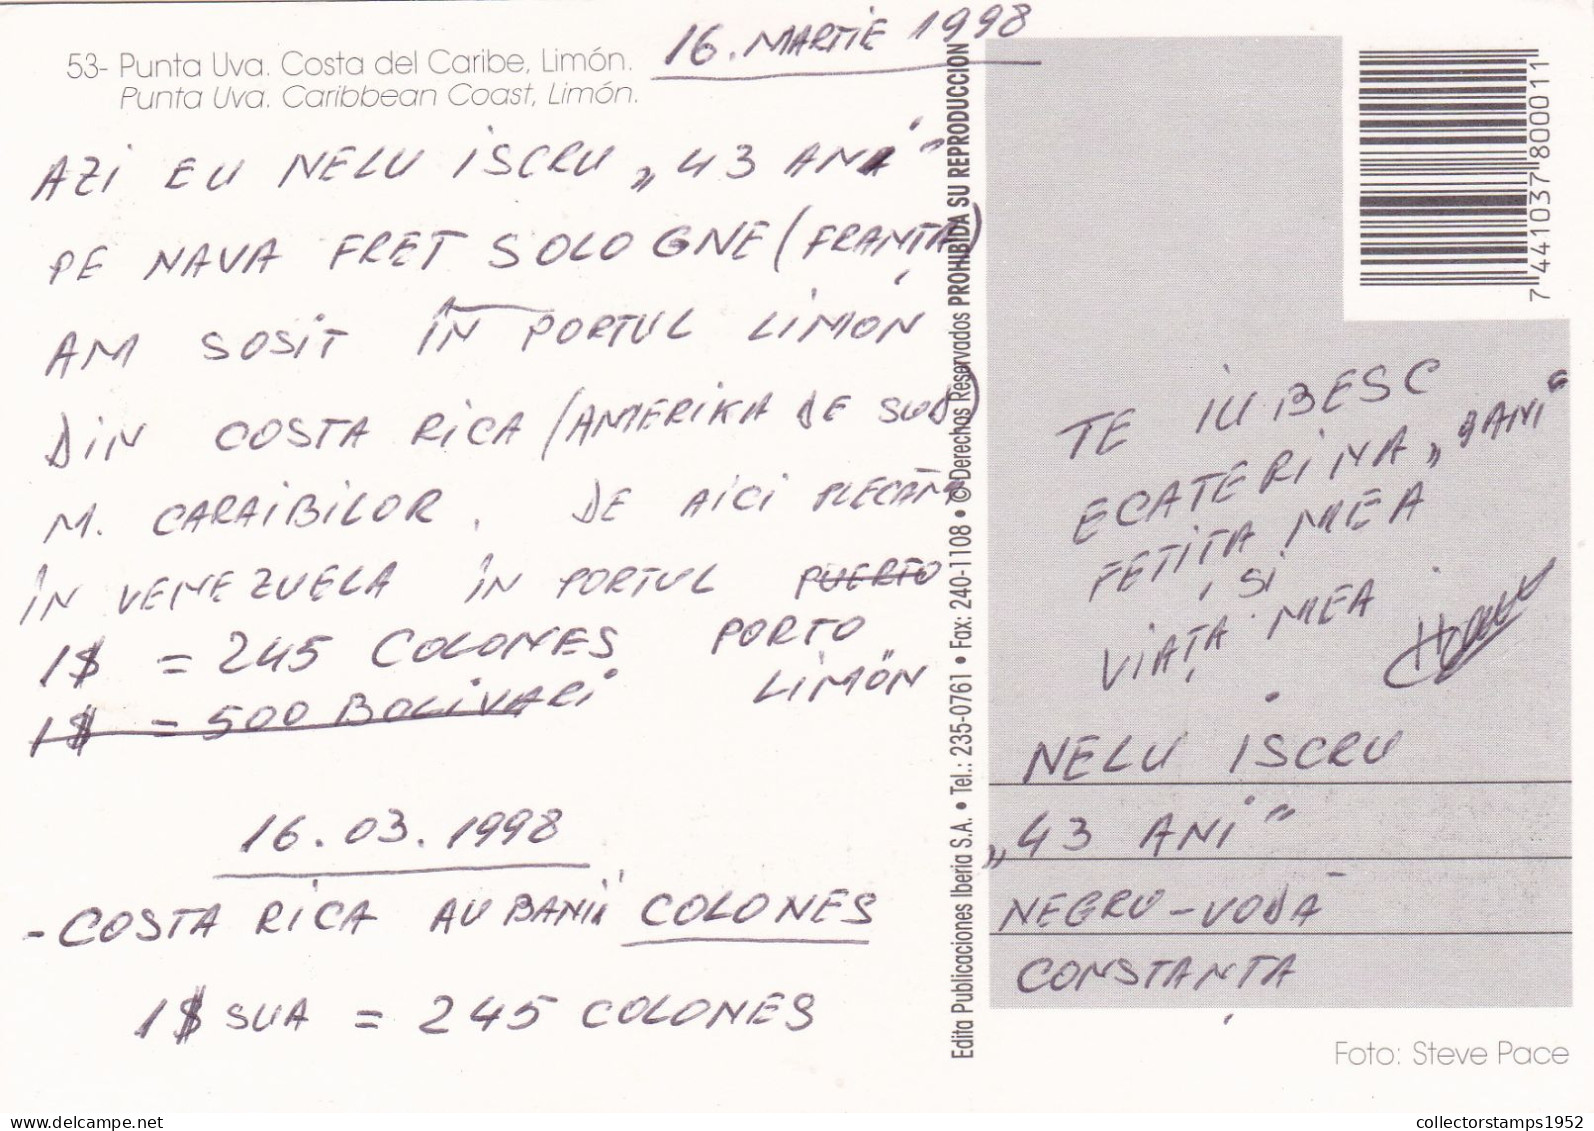 53- Punta Uva. Costa del Caribe, Limón.
Punta Uva. Caribbean Coast, Limón.
16. MARTIE 1998
AZI EU NELU ISCRU „43 ANI"
PE NAVA FRET SOLOGNE (FRANȚA)
AM SOSIT ÎN PORTUL LIMON
DIN COSTA RICA (AMERIKA DE SUD)
M. CARAIBILOR. DE AICI PLECĂM
ÎN VENEZUELA ÎN PORTUL PUERTO
1$ = 245 COLONES PORTO
1$ = 500 BOLIVARI LIMÓN
16.03.1998
- COSTA RICA AU BANII COLONES
1$ SUA = 245 COLONES
Edita Publicaciones Iberia S.A. • Tel.: 235-0761 • Fax: 240-1108 • © Derechos Reservados PROHIBIDA SU REPRODUCCION
7 441037 800011
TE IUBESC
ECATERINA „9 ANI"
FETIȚA MEA
SI
VIAȚA MEA
NELU ISCRU
„43 ANI"
NEGRU-VODĂ
CONSTANȚA
Foto: Steve Pace
collectorstamps1952